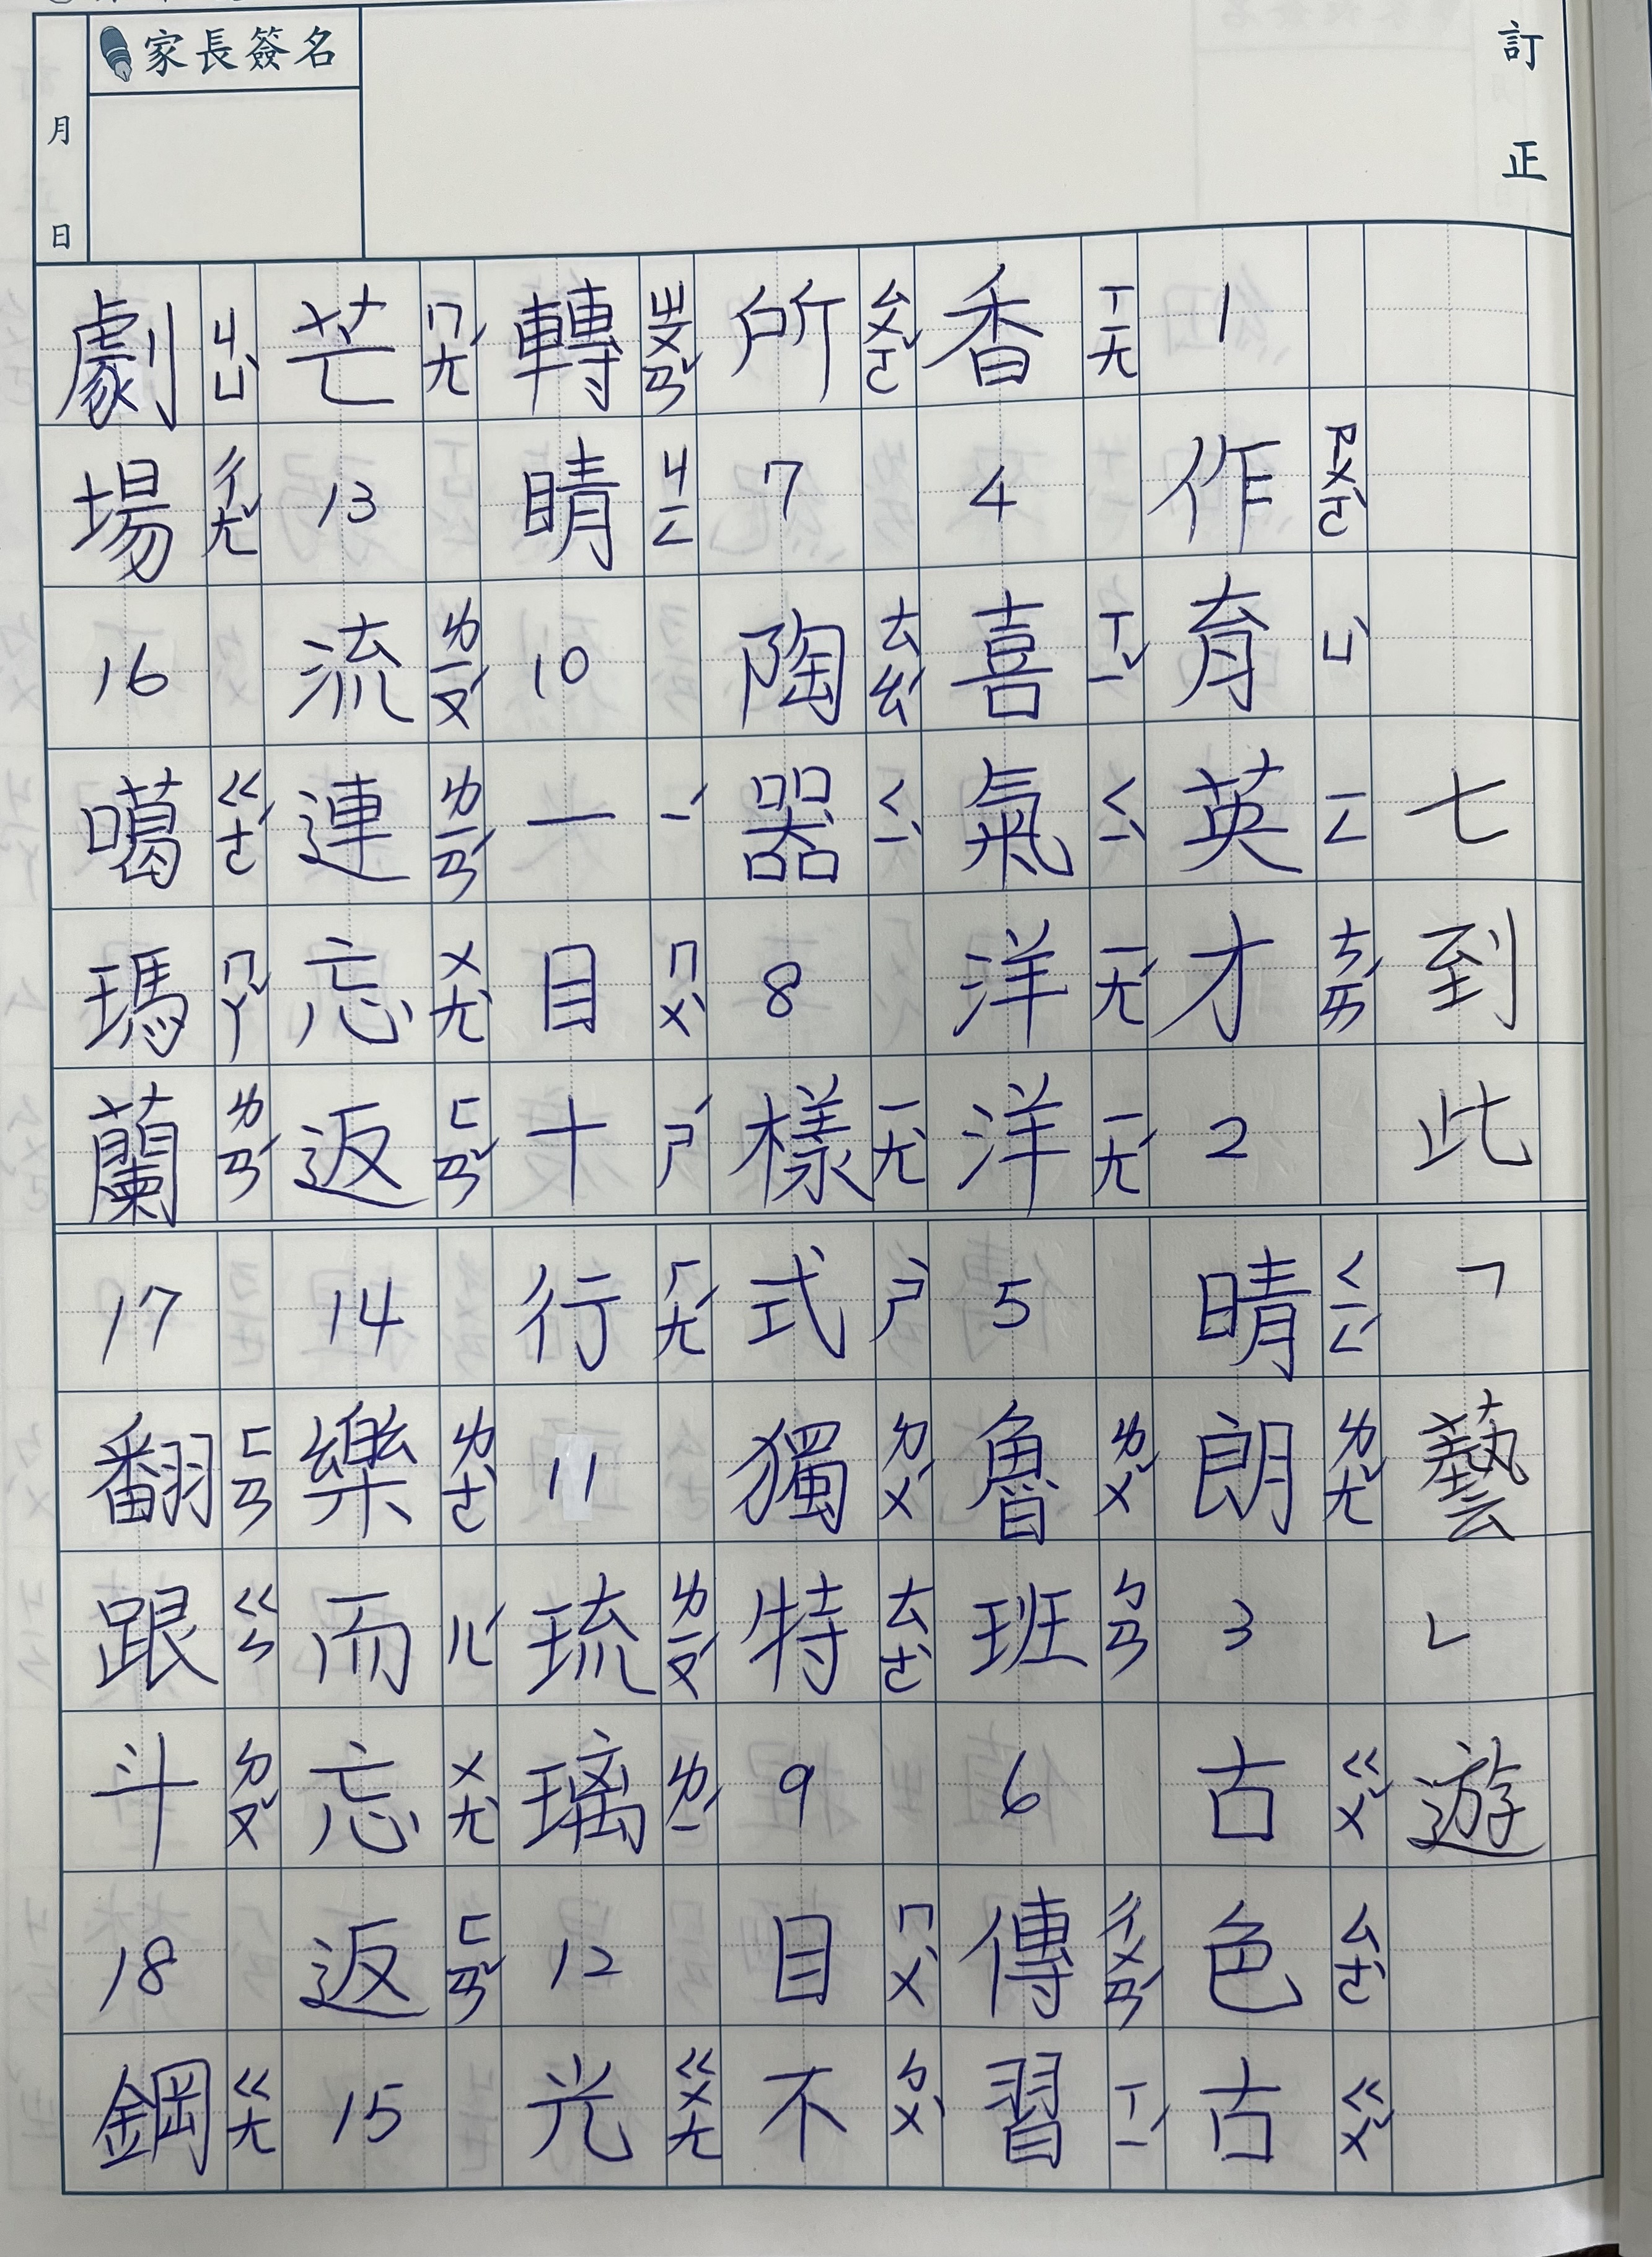 訂正
家長簽名
月 日
七到此「藝」遊
1作ㄗㄨㄛˋ育ㄩˋ英ㄧㄥ才ㄘㄞˊ2晴ㄑㄧㄥˊ朗ㄌㄤˇ3古ㄍㄨˇ色ㄙㄜˋ古ㄍㄨˇ
香ㄒㄧㄤ4喜ㄒㄧˇ氣ㄑㄧˋ洋ㄧㄤˊ洋ㄧㄤˊ5魯ㄌㄨˇ班ㄅㄢ6傳ㄔㄨㄢˊ習ㄒㄧˊ
所ㄙㄨㄛˇ7陶ㄊㄠˊ器ㄑㄧˋ8樣ㄧㄤˋ式ㄕˋ獨ㄉㄨˊ特ㄊㄜˋ9目ㄇㄨˋ不ㄅㄨˋ
轉ㄓㄨㄢˇ睛ㄐㄧㄥ10一ㄧˊ目ㄇㄨˋ十ㄕˊ行ㄏㄤˊ11琉ㄌㄧㄡˊ璃ㄌㄧˊ12光ㄍㄨㄤ
芒ㄇㄤˊ13流ㄌㄧㄡˊ連ㄌㄧㄢˊ忘ㄨㄤˋ返ㄈㄢˇ14樂ㄌㄜˋ而ㄦˊ忘ㄨㄤˋ返ㄈㄢˇ15
劇ㄐㄩˋ場ㄔㄤˇ16噶ㄍㄜˊ瑪ㄇㄚˇ蘭ㄌㄢˊ17翻ㄈㄢ跟ㄍㄣ斗ㄉㄡˇ18鋼ㄍㄤ